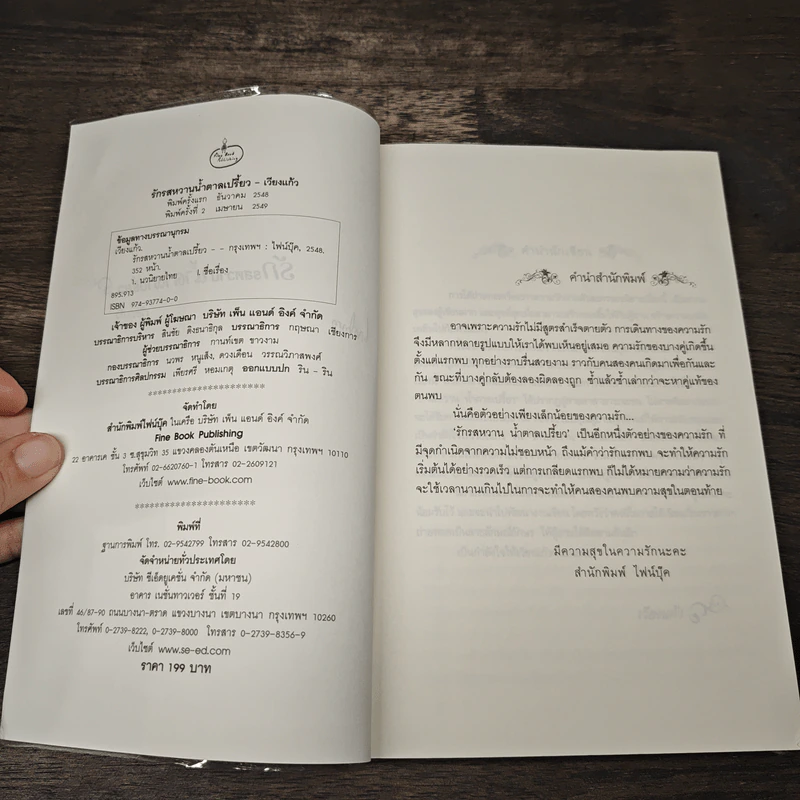 Fine Book
Publishing
รักรสหวานน้ำตาลเปรี้ยว - เวียงแก้ว
พิมพ์ครั้งแรก ธันวาคม 2548
พิมพ์ครั้งที่ 2 เมษายน 2549
ข้อมูลทางบรรณานุกรม
เวียงแก้ว.
รักรสหวานน้ำตาลเปรี้ยว - - กรุงเทพฯ : ไฟน์บุ๊ค, 2548.
352 หน้า.
1. นวนิยายไทย I. ชื่อเรื่อง
895.913
ISBN 974-93774-0-0
เจ้าของ ผู้พิมพ์ ผู้โฆษณา บริษัท เพ็น แอนด์ อิงค์ จำกัด
บรรณาธิการบริหาร สินชัย ตึงธนากุล บรรณาธิการ กฤษณา เชียงการ
ผู้ช่วยบรรณาธิการ กานท์เขต ชาวงาม
กองบรรณาธิการ นวพร หนูเส้ง, ดวงเดือน วรรณวิภาสพงศ์
บรรณาธิการศิลปกรรม เพียรศรี หอมเกตุ ออกแบบปก ริน - ริน
**********************
จัดทำโดย
สำนักพิมพ์ไฟน์บุ๊ค ในเครือ บริษัท เพ็น แอนด์ อิงค์ จำกัด
Fine Book Publishing
22 อาคารเค ชั้น 3 ซ.สุขุมวิท 35 แขวงคลองตันเหนือ เขตวัฒนา กรุงเทพฯ 10110
โทรศัพท์ 02-6620760-1 โทรสาร 02-2609121
เว็บไซต์ www.fine-book.com
**********************
พิมพ์ที่
ฐานการพิมพ์ โทร. 02-9542799 โทรสาร 02-9542800
จัดจำหน่ายทั่วประเทศโดย
บริษัท ซีเอ็ดยูเคชั่น จำกัด (มหาชน)
อาคาร เนชั่นทาวเวอร์ ชั้นที่ 19
เลขที่ 46/87-90 ถนนบางนา-ตราด แขวงบางนา เขตบางนา กรุงเทพฯ 10260
โทรศัพท์ 0-2739-8222, 0-2739-8000 โทรสาร 0-2739-8356-9
เว็บไซต์ www.se-ed.com
ราคา 199 บาท
คำนำสำนักพิมพ์
อาจเพราะความรักไม่มีสูตรสำเร็จตายตัว การเดินทางของความรัก
จึงมีหลากหลายรูปแบบให้เราได้พบเห็นอยู่เสมอ ความรักของบางคู่เกิดขึ้น
ตั้งแต่แรกพบ ทุกอย่างราบรื่นสวยงาม ราวกับคนสองคนเกิดมาเพื่อกันและ
กัน ขณะที่บางคู่กลับต้องลองผิดลองถูก ซ้ำแล้วซ้ำเล่ากว่าจะหาคู่แท้ของ
ตนพบ
นั่นคือตัวอย่างเพียงเล็กน้อยของความรัก...
'รักรสหวาน น้ำตาลเปรี้ยว' เป็นอีกหนึ่งตัวอย่างของความรัก ที่
มีจุดกำเนิดจากความไม่ชอบหน้า ถึงแม้คำว่ารักแรกพบ จะทำให้ความรัก
เริ่มต้นได้อย่างรวดเร็ว แต่การเกลียดแรกพบ ก็ไม่ได้หมายความว่าความรัก
จะใช้เวลานานเกินไปในการจะทำให้คนสองคนพบความสุขในตอนท้าย
มีความสุขในความรักนะคะ
สำนักพิมพ์ ไฟน์บุ๊ค